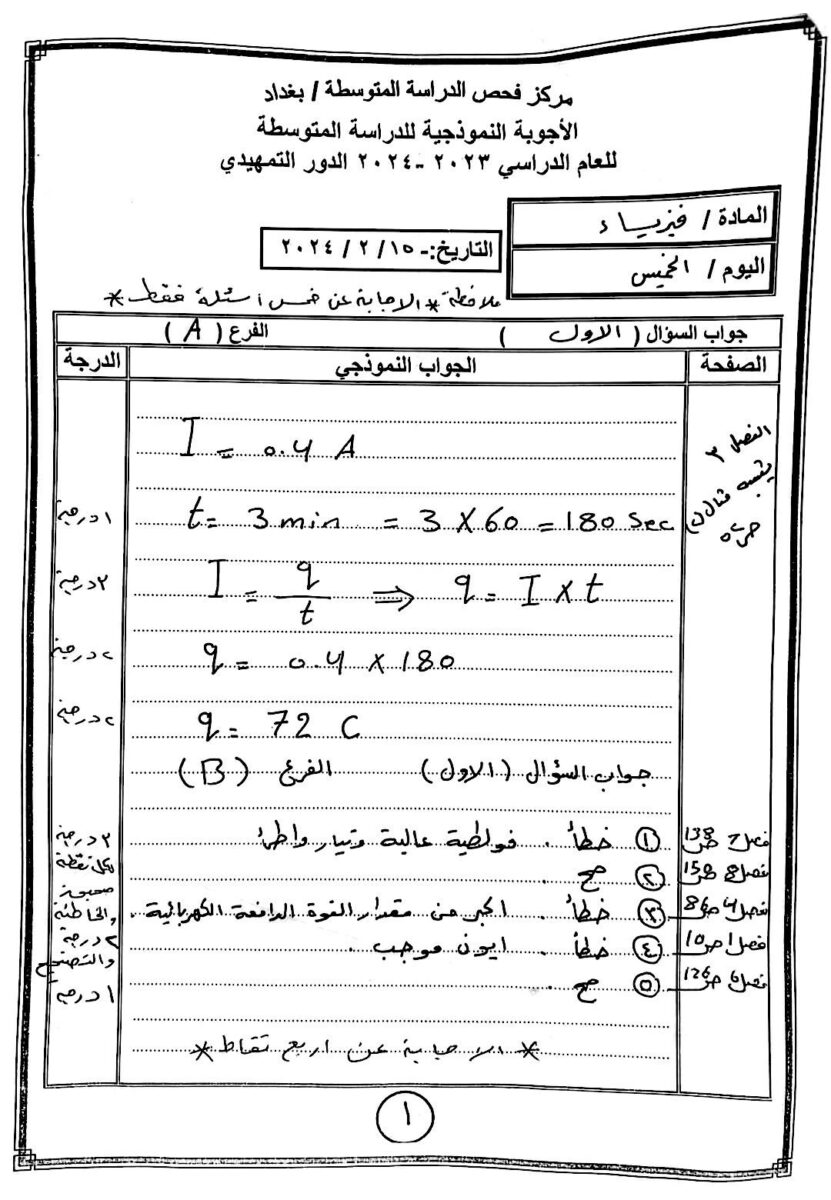 مركز فحص الدراسة المتوسطة / بغداد
الأجوبة النموذجية للدراسة المتوسطة
للعام الدراسي ٢٠٢٣ -٢٠٢٤ الدور التمهيدي
المادة / فيزياء
اليوم / الخميس
التاريخ:- ١٥ / ٢ / ٢٠٢٤
ملاحظة * الاجابة عن خمس اسئلة فقط *
جواب السؤال ( الاول ) الفرع ( A )
الصفحة الجواب النموذجي الدرجة
الفصل ٣
I = 0.4 A
t = 3 min = 3 X 60 = 180 Sec ١ درجة
I = q / t ⇒ q = I X t ٣ درجة
q = 0.4 X 180 ٢ درجة
q = 72 C ٢ درجة
جواب السؤال (الاول) الفرع (B)
فصل ٧ ص ١٣٨ ① خطأ . فولطية عالية وتيار واطئ ٣ درجة
فصل ٨ ص ١٥٨ ② صح . لكل نقطة
فصل ٤ ص ٨٦ ③ خطأ . اكبر من مقدار القوة الدافعة الكهربائية . والخاطئة
فصل ١ ص ١٠ ④ خطأ . ايون موجب . ٢ درجة
والتصحيح
فصل ٦ ص ١٢٦ ⑤ صح . ١ درجة
* الاجابة عن اربع نقاط *
١